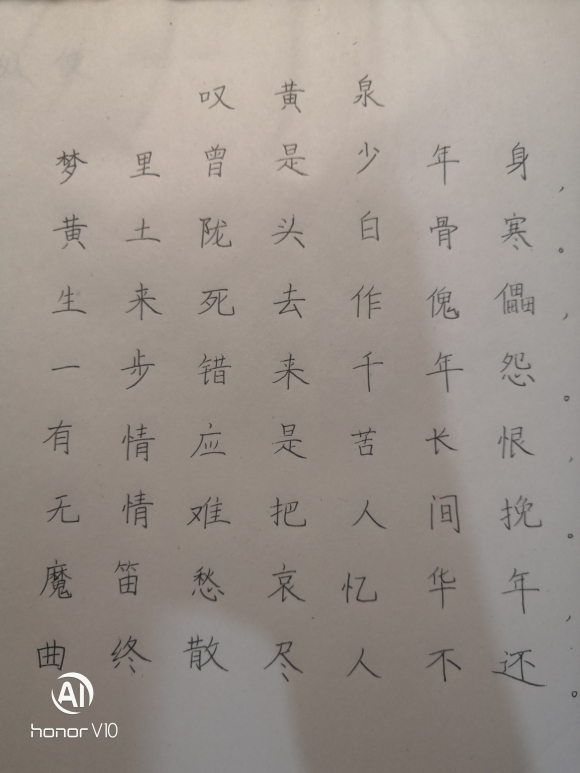 叹黄泉
梦里曾是少年身，
黄土陇头白骨寒。
生来死去作傀儡，
一步错来千年怨。
有情应是苦长恨，
无情难把人间挽。
魔笛愁哀忆华年，
曲终散尽人不还。
AI
honor V10